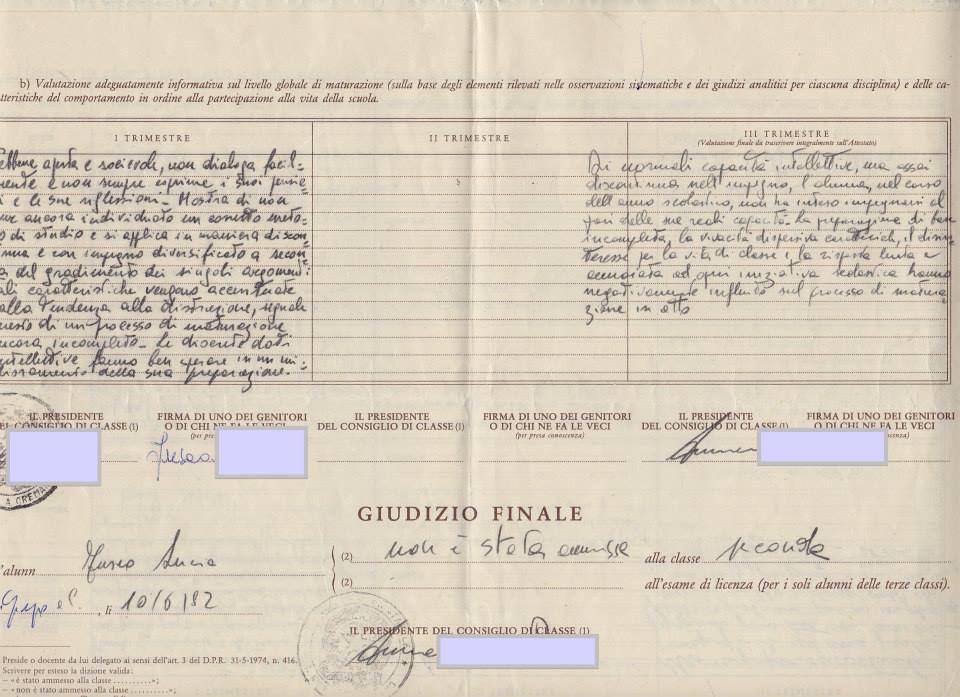 b) Valutazione adeguatamente informativa sul livello globale di maturazione (sulla base degli elementi rilevati nelle osservazioni sistematiche e dei giudizi analitici per ciascuna disciplina) e delle ca-
tteristiche del comportamento in ordine alla partecipazione alla vita della scuola.
I TRIMESTRE
ebbene aperta e socievole, non dialoga facil-
mente e non sempre esprime i suoi pensie-
i e le sue riflessioni. Mostra di non
ancora individuato un corretto meto-
o di studio e si applica in maniera discon-
tinua e con impegno diversificato a secon-
a del gradimento dei singoli argomenti
ali caratteristiche vengono accentuate
alla tendenza alla distrazione, segnale
di un processo di maturazione
ncora incompleto. Le discrete doti
intellettive fanno ben sperare in un mi-
glioramento della sua preparazione.
II TRIMESTRE
III TRIMESTRE
(Valutazione finale da trascrivere integralmente sull'Attestato)
Di normali capacità intellettive, ma assai
discontinua nell'impegno, l'alunna, nel corso
dell'anno scolastico, non ha inteso impegnarsi al
pari delle sue reali capacità. la preparazione di base
incompleta, la vivacità dispersiva caratteriale, il disin-
teresse per la vita di classe, la risposta lenta e
ad ogni iniziativa scolastica hanno
negativamente influito sul processo di matura
zione in atto
IL PRESIDENTE
DEL CONSIGLIO DI CLASSE (1)
FIRMA DI UNO DEI GENITORI
O DI CHI NE FA LE VECI
(per pre
IL PRESIDENTE
DEL CONSIGLIO DI CLASSE (1)
FIRMA DI UNO DEI GENITORI
O DI CHI NE FA LE VECI
(per presa conoscenza)
IL PRESIDENTE
DEL CONSIGLIO DI CLASSE (1)
FIRMA DI UNO DEI GENITORI
O DI CHI NE FA LE VECI
noscenza)
A CREMA
GIUDIZIO FINALE
'alunn
(2) non è stata ammessa alla classe seconda
(2) all'esame di licenza (per i soli alunni delle terze classi).
, li 10/6/82
IL PRESIDENTE DEL CONSIGLIO DI CLASSE (1)
Preside o docente da lui delegato ai sensi dell'art. 3 del D.P.R. 31-5-1974, n. 416.
Scrivere per esteso la dizione valida:
– «è stato ammesso alla classe ..........»;
– «non è stato ammesso alla classe ..........»;